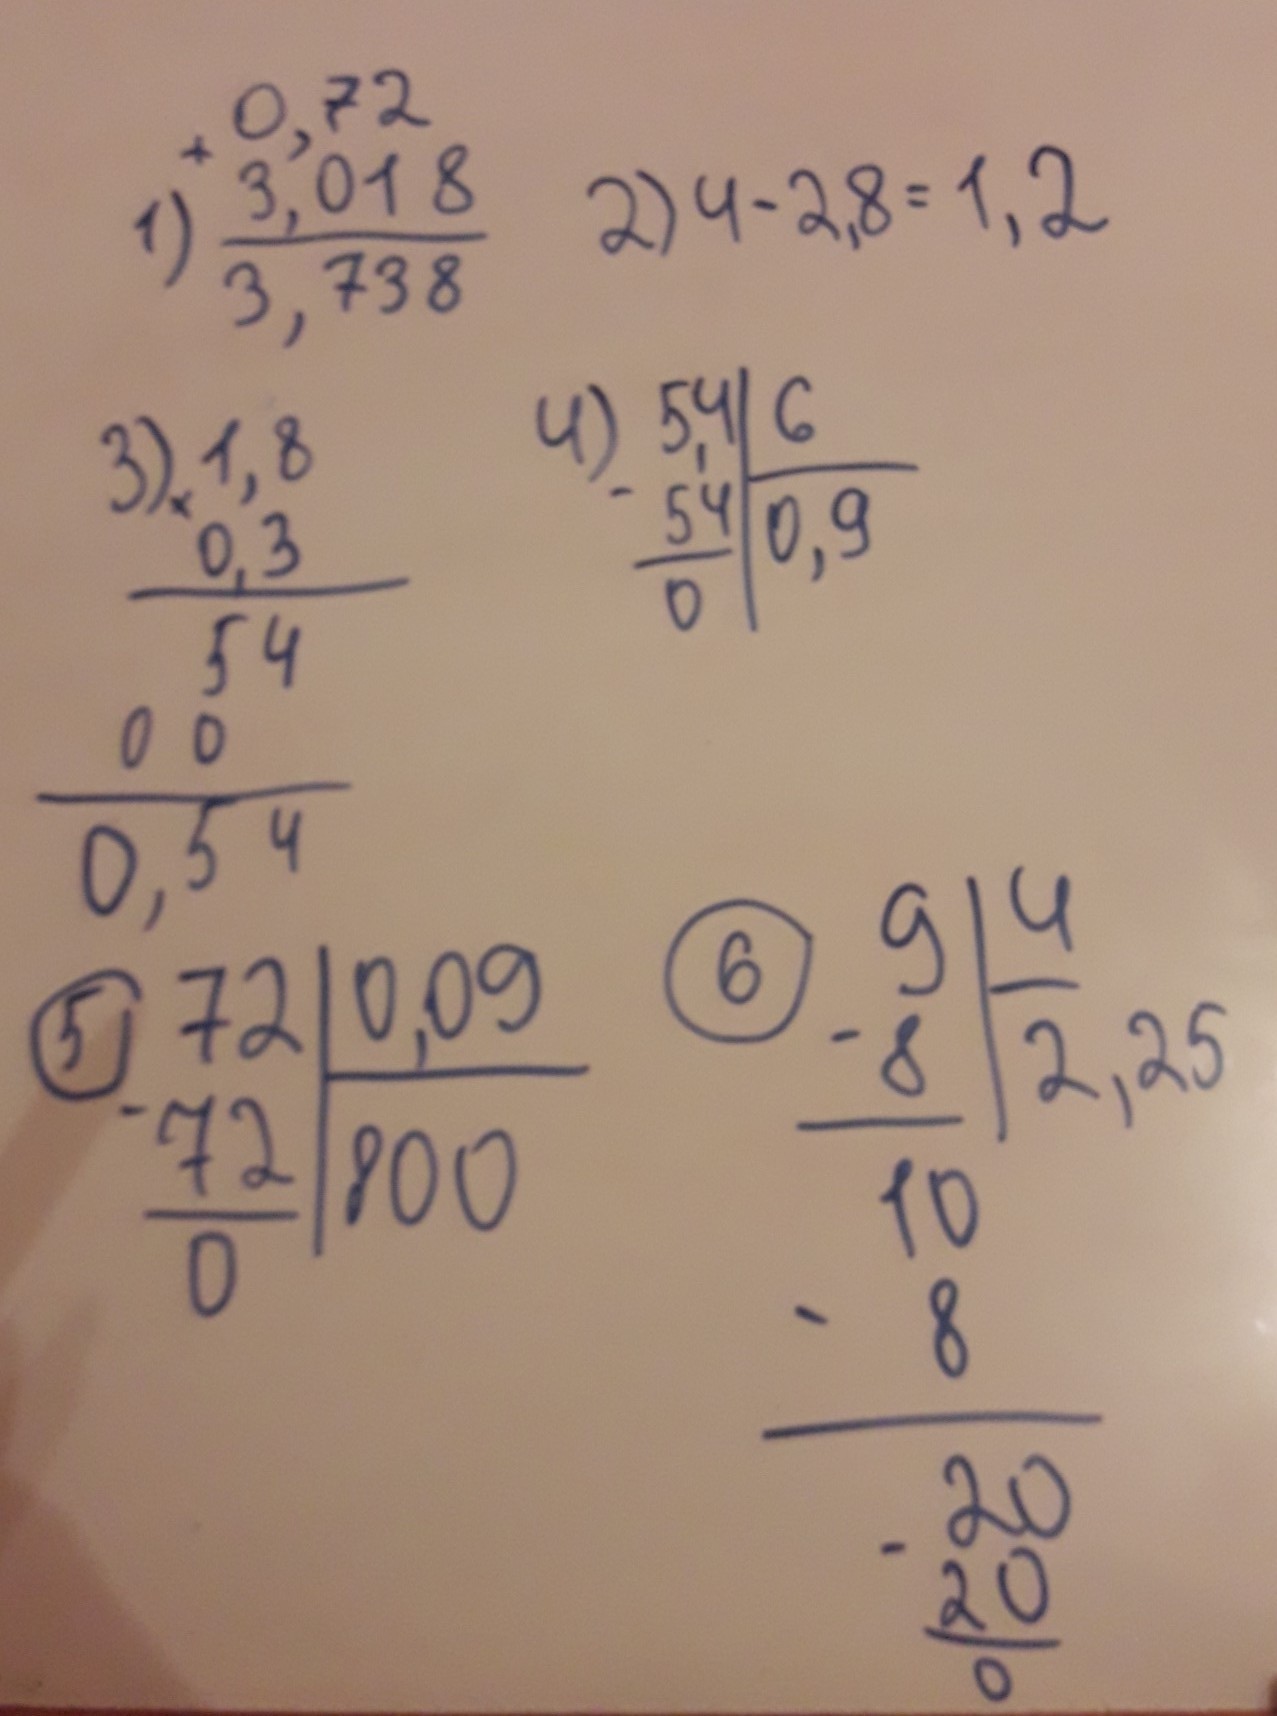 + 0,72
1) 3,018
3,738
2) 4 - 2,8 = 1,2
3) 1,8
× 0,3
54
00
0,54
4) 5,4 | 6
- 54 | 0,9
0
5 72 | 0,09
- 72 | 800
0
6 9 | 4
- 8 | 2,25
10
- 8
20
- 20
0